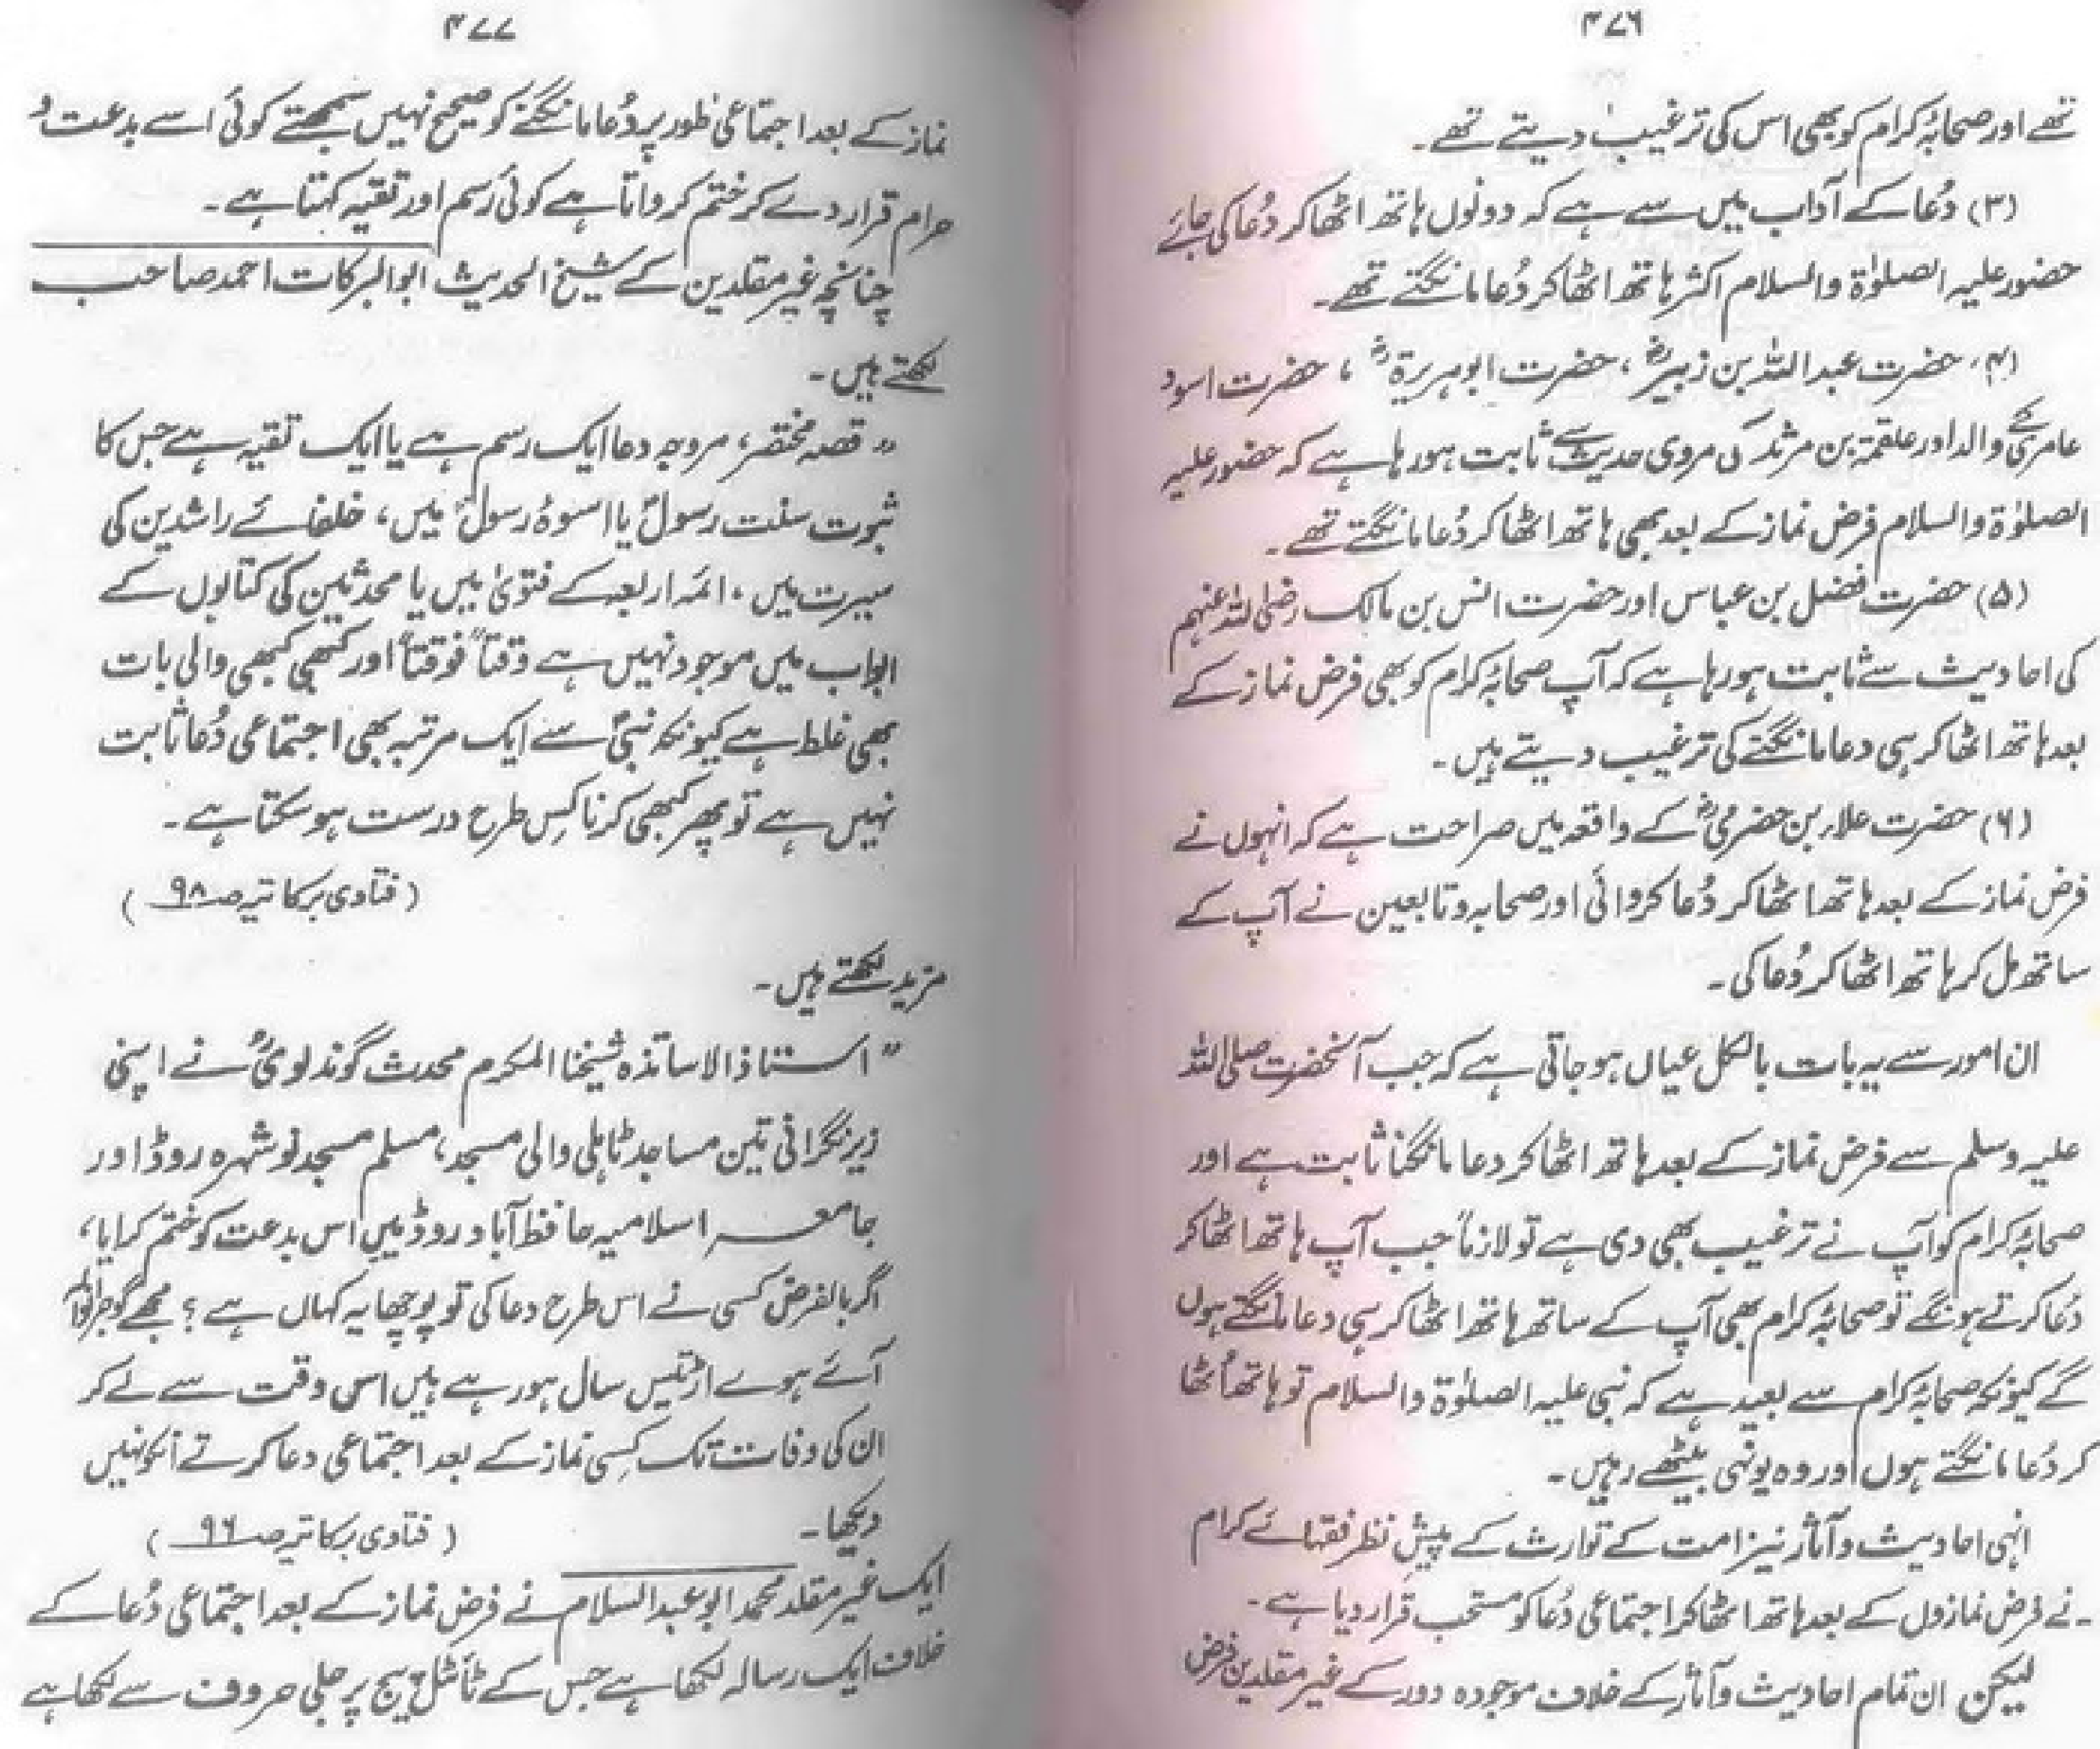 ۴۷۶
تھے اور صحابۂ کرام کو بھی اس کی ترغیب دیتے تھے۔
(۳) دُعا کے آداب میں سے ہے کہ دونوں ہاتھ اٹھا کر دُعا کی جائے
حضور علیہ الصلوٰۃ والسلام اکثر ہاتھ اٹھا کر دُعا مانگتے تھے۔
(۴) حضرت عبداللہ بن زبیرؓ، حضرت ابوہریرۃؓ، حضرت اسود
عامری کے والد اور علقمۃ بن مرثد کی مروی حدیث سے ثابت ہو رہا ہے کہ حضور علیہ
الصلوٰۃ والسلام فرض نماز کے بعد بھی ہاتھ اٹھا کر دُعا مانگتے تھے۔
(۵) حضرت فضل بن عباس اور حضرت انس بن مالک رضی اللہ عنہم
کی احادیث سے ثابت ہو رہا ہے کہ آپ صحابۂ کرام کو بھی فرض نماز کے
بعد ہاتھ اٹھا کر ہی دعا مانگنے کی ترغیب دیتے ہیں۔
(۶) حضرت علاء بن حضرمیؓ کے واقعہ میں صراحت ہے کہ انہوں نے
فرض نماز کے بعد ہاتھ اٹھا کر دُعا کروائی اور صحابہ و تابعین نے آپ کے
ساتھ مل کر ہاتھ اٹھا کر دُعا کی۔
ان امور سے یہ بات بالکل عیاں ہو جاتی ہے کہ جب آنحضرت صلی اللہ
علیہ وسلم سے فرض نماز کے بعد ہاتھ اٹھا کر دعا مانگنا ثابت ہے اور
صحابۂ کرام کو آپ نے ترغیب بھی دی ہے تو لازماً جب آپ ہاتھ اٹھا کر
دُعا کرتے ہونگے تو صحابۂ کرام بھی آپ کے ساتھ ہاتھ اٹھا کر ہی دعا مانگتے ہوں
گے کیونکہ صحابۂ کرام سے بعید ہے کہ نبی علیہ الصلوٰۃ والسلام تو ہاتھ اُٹھا
کر دُعا مانگتے ہوں اور وہ یونہی بیٹھے رہیں۔
انہی احادیث و آثار نیز امت کے توارث کے پیشِ نظر فقہائے کرام
نے فرض نمازوں کے بعد ہاتھ اٹھا کر اجتماعی دُعا کو مستحب قرار دیا ہے۔
لیکن ان تمام احادیث و آثار کے خلاف موجودہ دور کے غیر مقلدین فرض
۴۷۷
نماز کے بعد اجتماعی طور پر دُعا مانگنے کو صحیح نہیں سمجھتے کوئی اسے بدعت و
حرام قرار دے کر ختم کرواتا ہے کوئی رسم اور تقیہ کہتا ہے۔
چنانچہ غیر مقلدین کے شیخ الحدیث ابوالبرکات احمد صاحب
لکھتے ہیں۔
"قصہ مختصر، مروجہ دعا ایک رسم ہے یا ایک تقیہ ہے جس کا
ثبوت سنت رسولؐ یا اسوۂ رسولؐ میں، خلفائے راشدین کی
سیرت میں، ائمہ اربعہ کے فتویٰ میں یا محدثین کی کتابوں کے
ابواب میں موجود نہیں ہے وقتاً فوقتاً اور کبھی کبھی والی بات
بھی غلط ہے کیونکہ نبیؐ سے ایک مرتبہ بھی اجتماعی دُعا ثابت
نہیں ہے تو پھر کبھی کرنا کِس طرح درست ہو سکتا ہے۔
(فتاوی برکاتیہ صـ ۹۸)
مزید لکھتے ہیں۔
"استاذ الاساتذہ شیخنا المکرم محدث گوندلویؒ نے اپنی
زیر نگرانی تین مساجد ٹاہلی والی مسجد، مسلم مسجد نوشہرہ روڈ اور
جامعہ اسلامیہ حافظ آباد روڈ میں اس بدعت کو ختم کرایا،
اگر بالفرض کسی نے اس طرح دعا کی تو پوچھا یہ کہاں ہے؟ مجھے گوجرانوالہ
آئے ہوئے اڑتیس سال ہو رہے ہیں اسی وقت سے لے کر
ان کی وفات تک کِسی نماز کے بعد اجتماعی دعا کرتے انکو نہیں
دیکھا۔ (فتاوی برکاتیہ صـ ۹۶)
ایک غیر مقلد محمد ابو عبدالسلام نے فرض نماز کے بعد اجتماعی دُعا کے
خلاف ایک رسالہ لکھا ہے جس کے ٹائٹل پیج پر جلی حروف سے لکھا ہے